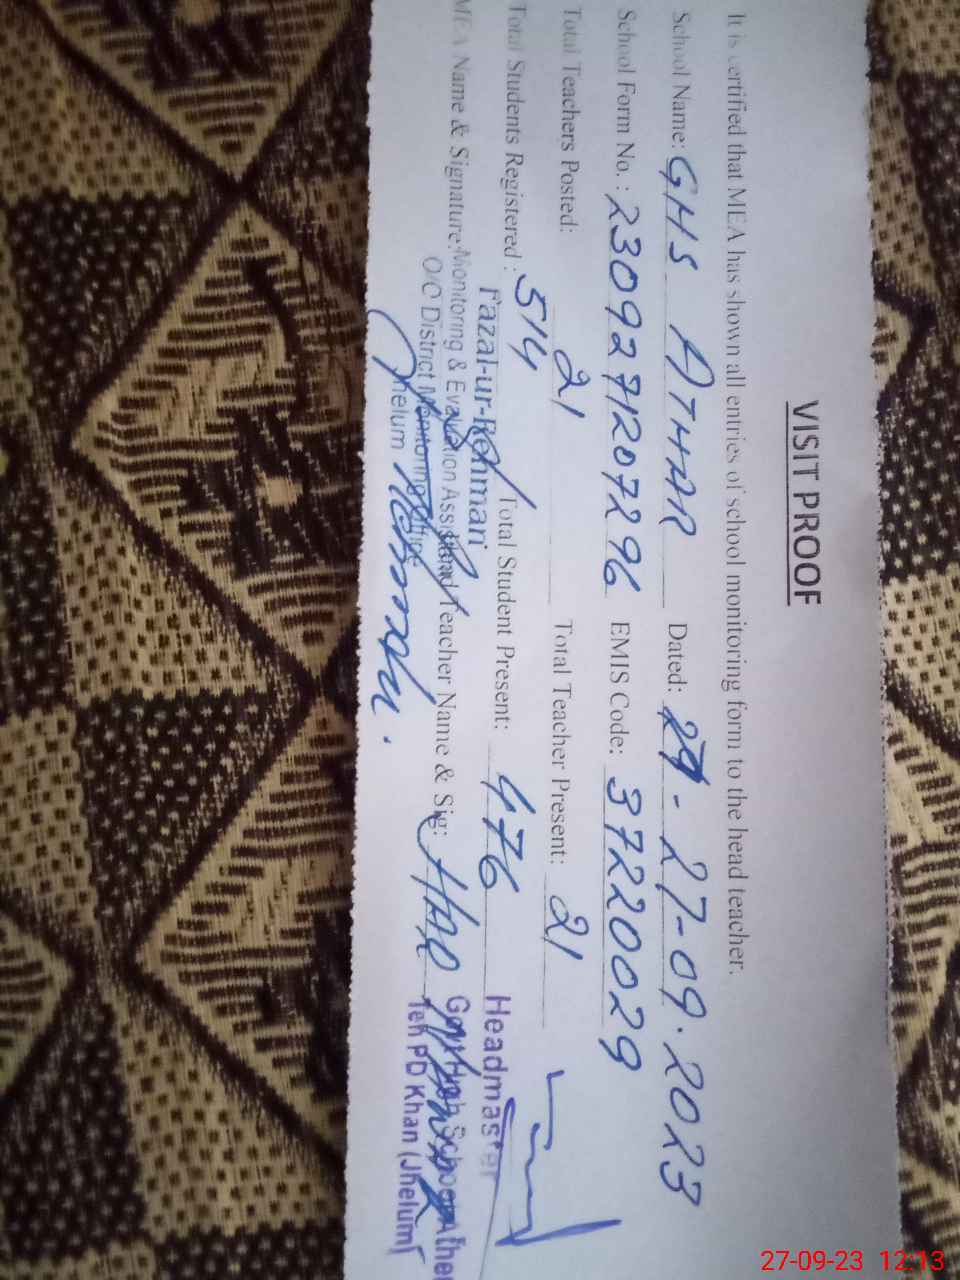 VISIT PROOF
It is certified that MEA has shown all entries of school monitoring form to the head teacher.
School Name: GHS ATHAR Dated: 27-09.2023
School Form No. : 2309271207296 EMIS Code: 37220029
Total Teachers Posted: 21 Total Teacher Present: 21
Total Students Registered : 514 Total Student Present: 476
MEA Name & Signature: Teacher Name & Sig:
Fazal-ur-Rehman
Monitoring & Evaluation Assistant
O/O District Monitoring Office
Jhelum
Headmaster
Govt High School Athar
Teh PD Khan (Jhelum)
27-09-23 12:13